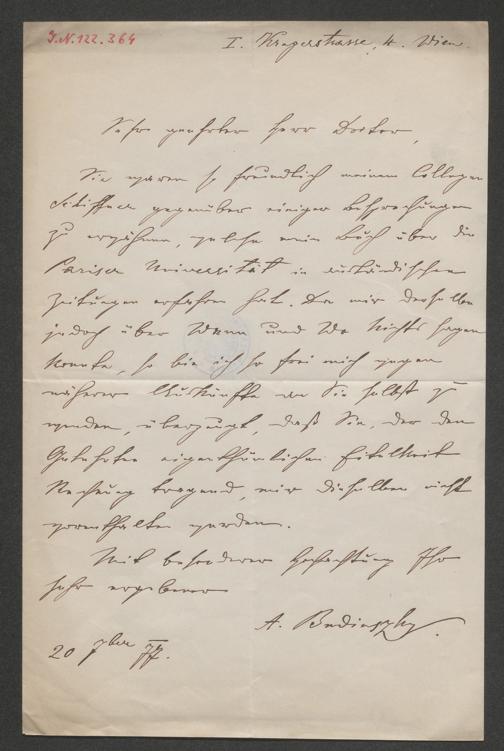 J.N. 122.364
I. Krugerstrasse, 4. Wien.
Sehr geehrter Herr Doctor,
Sie waren so freundlich meinem Collegen
gegenüber einiger Besprechungen
zu erwähnen, welche mein Buch über die
Pariser Universität in ausländischen
Zeitungen erfahren hat. Da mir derselbe
jedoch über Wann und Wo Nichts sagen
konnte, so bin ich so frei mich wegen
näherer Auskünfte an Sie selbst zu
wenden, überzeugt, daß Sie, der den
Gelehrten eigenthümlichen Eitelkeit
Rechnung tragend, mir dieselben nicht
vorenthalten werden.
Mit besonderer Hochachtung Ihr
sehr ergebener
A. Budinszky.
20 7ber 77.